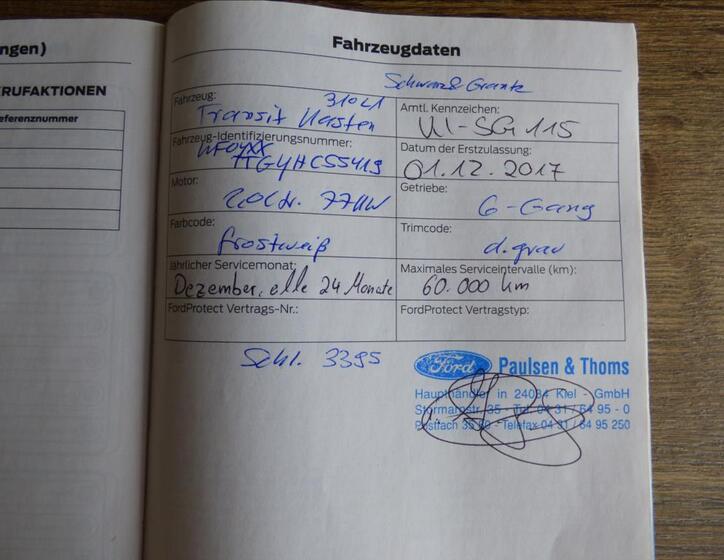 ngen)
RUFAKTIONEN
eferenznummer
Fahrzeugdaten
Schwarz & Grantz
Fahrzeug: 310 L1
Transit Kasten
Amtl. Kennzeichen:
WI-SG 115
Fahrzeug-Identifizierungsnummer:
WF0YXX
TTGYHC55419
Datum der Erstzulassung:
01.12.2017
Motor:
2,0 Ltr. 77 KW
Getriebe:
6-Gang
Farbcode:
frostweiß
Trimcode:
d.grau
Jährlicher Servicemonat:
Dezember, alle 24 Monate
Maximales Serviceintervalle (km):
60.000 km
FordProtect Vertrags-Nr.:
FordProtect Vertragstyp:
Schl. 3395
Ford Paulsen & Thoms
Haupthändler in 24034 Kiel - GmbH
Stormarnstr. 35 - Tel. 04 31 / 64 95 - 0
Postfach - Telefax 04 31 / 64 95 250